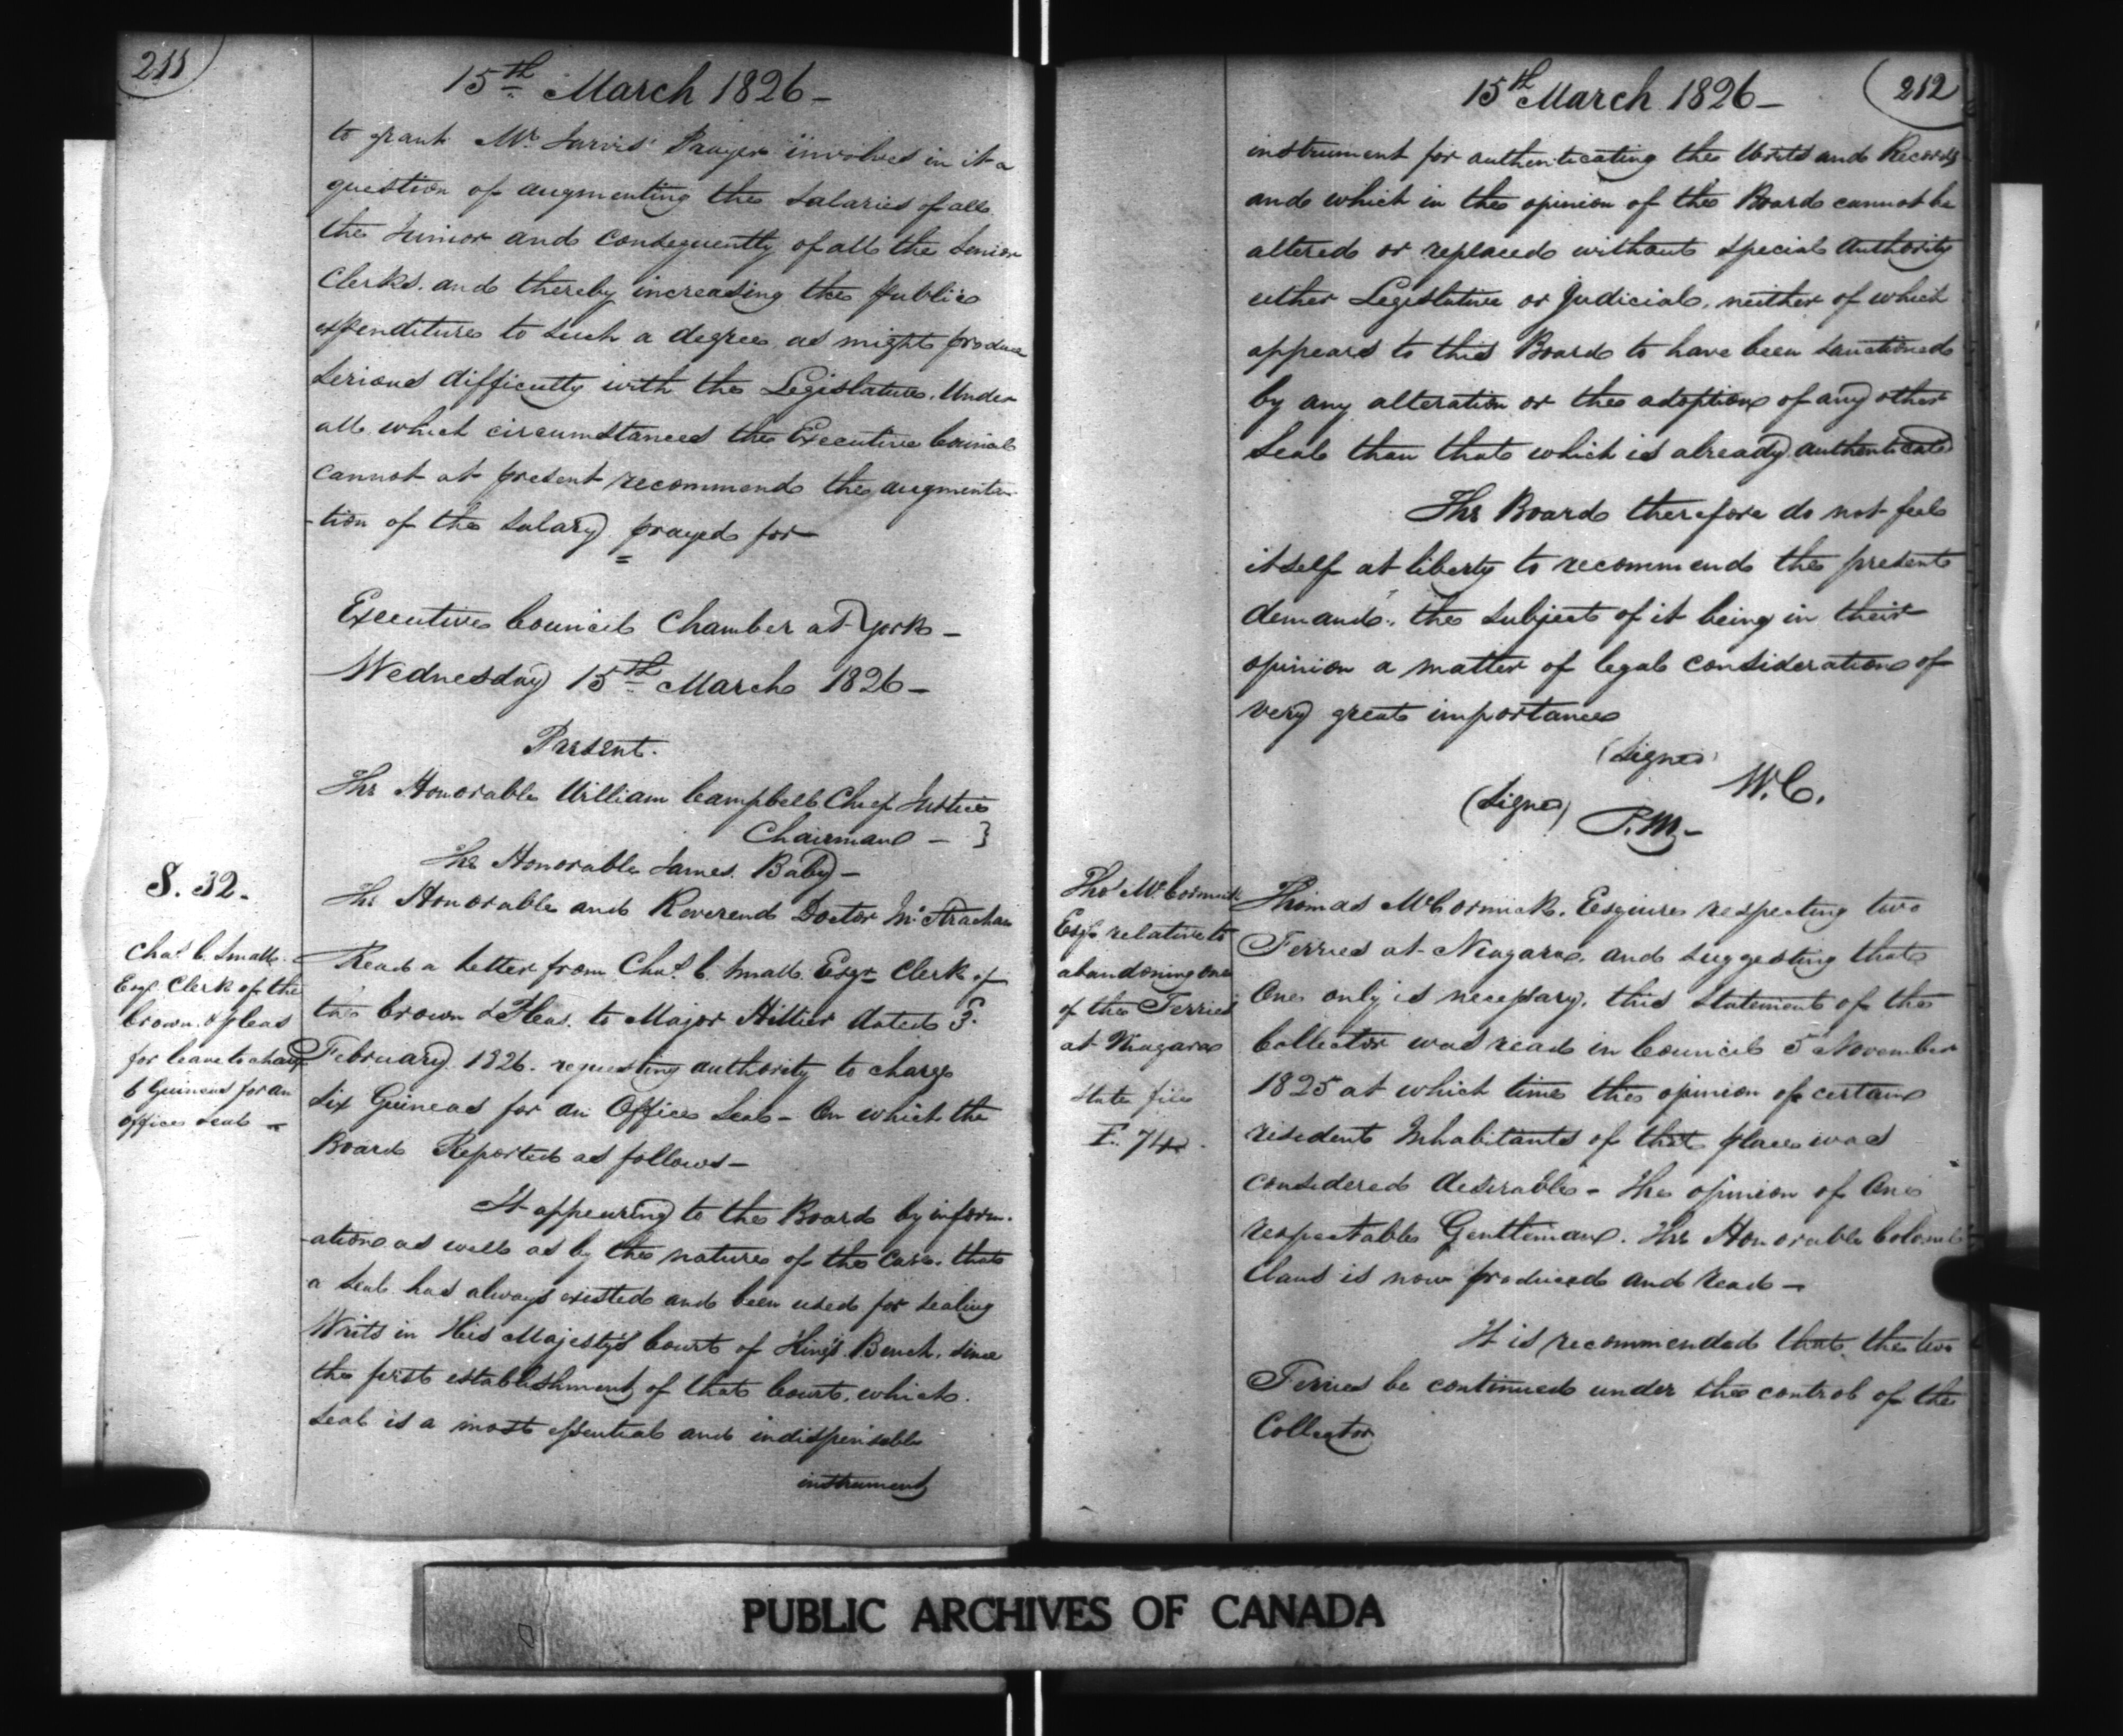 211
15th March 1826 -
to grant Mr. Jarvis' Prayer involves in it a
question of augmenting the Salaries of all
the Junior and consequently of all the Senior
Clerks. and thereby increasing the public
expenditure to such a degree as might produce
serious difficulty with the Legislature. Under
all which circumstances the Executive Council
cannot at present recommend the augmenta-
-tion of the Salary prayed for -
Executive Council Chamber at York -
Wednesday 15th March 1826 -
Present.
The Honorable William Campbell Chief Justice
Chairman - }
The Honorable James Baby -
The Honorable and Reverend Doctor Jno. Strachan
S. 32.
Chas. C. Small
Esqr. Clerk of the
Crown & Pleas
for leave to charge
6 Guineas for an
office seal -
Read a letter from Chas. C. Small Esqr. Clerk of
the Crown & Pleas. to Major Hillier dated 3.
February 1826. requesting authority to charge
Six Guineas for an Office Seal - On which the
Board Reported as follows -
It appearing to the Board by inform-
-ation as well as by the nature of the case. that
a seal has always existed and been used for sealing
Writs in His Majesty's Court of King's Bench. since
the first establishment of that Court. which
seal is a most essential and indispensable
instrument
15th March 1826 -
212
instrument for authenticating the Writs and Records
and which in the opinion of the Board cannot be
altered or replaced without special authority
either Legislative or Judicial, neither of which
appears to this Board to have been sanctioned
by any alteration or the adoption of any other
Seal than that which is already authenticated
The Board therefore do not feel
itself at liberty to recommend the present
demand, the subject of it being in their
opinion a matter of legal consideration of
very great importance
(Signed)
W.C.
(Signed)
P.M -
Thos. McCormick
Esqr. relative to
abandoning one
of the Ferries
at Niagara
State file
F. 74.
Thomas McCormick. Esquire respecting two
Ferries at Niagara, and suggesting that
One only is necessary. this Statement of the
Collector was read in Council 5 November
1825 at which time the opinion of certain
resident Inhabitants of that place was
considered desirable - The opinion of One
respectable Gentleman. The Honorable Colonel
Claus is now produced and read -
It is recommended that the two
Ferries be continued under the control of the
Collector
PUBLIC ARCHIVES OF CANADA